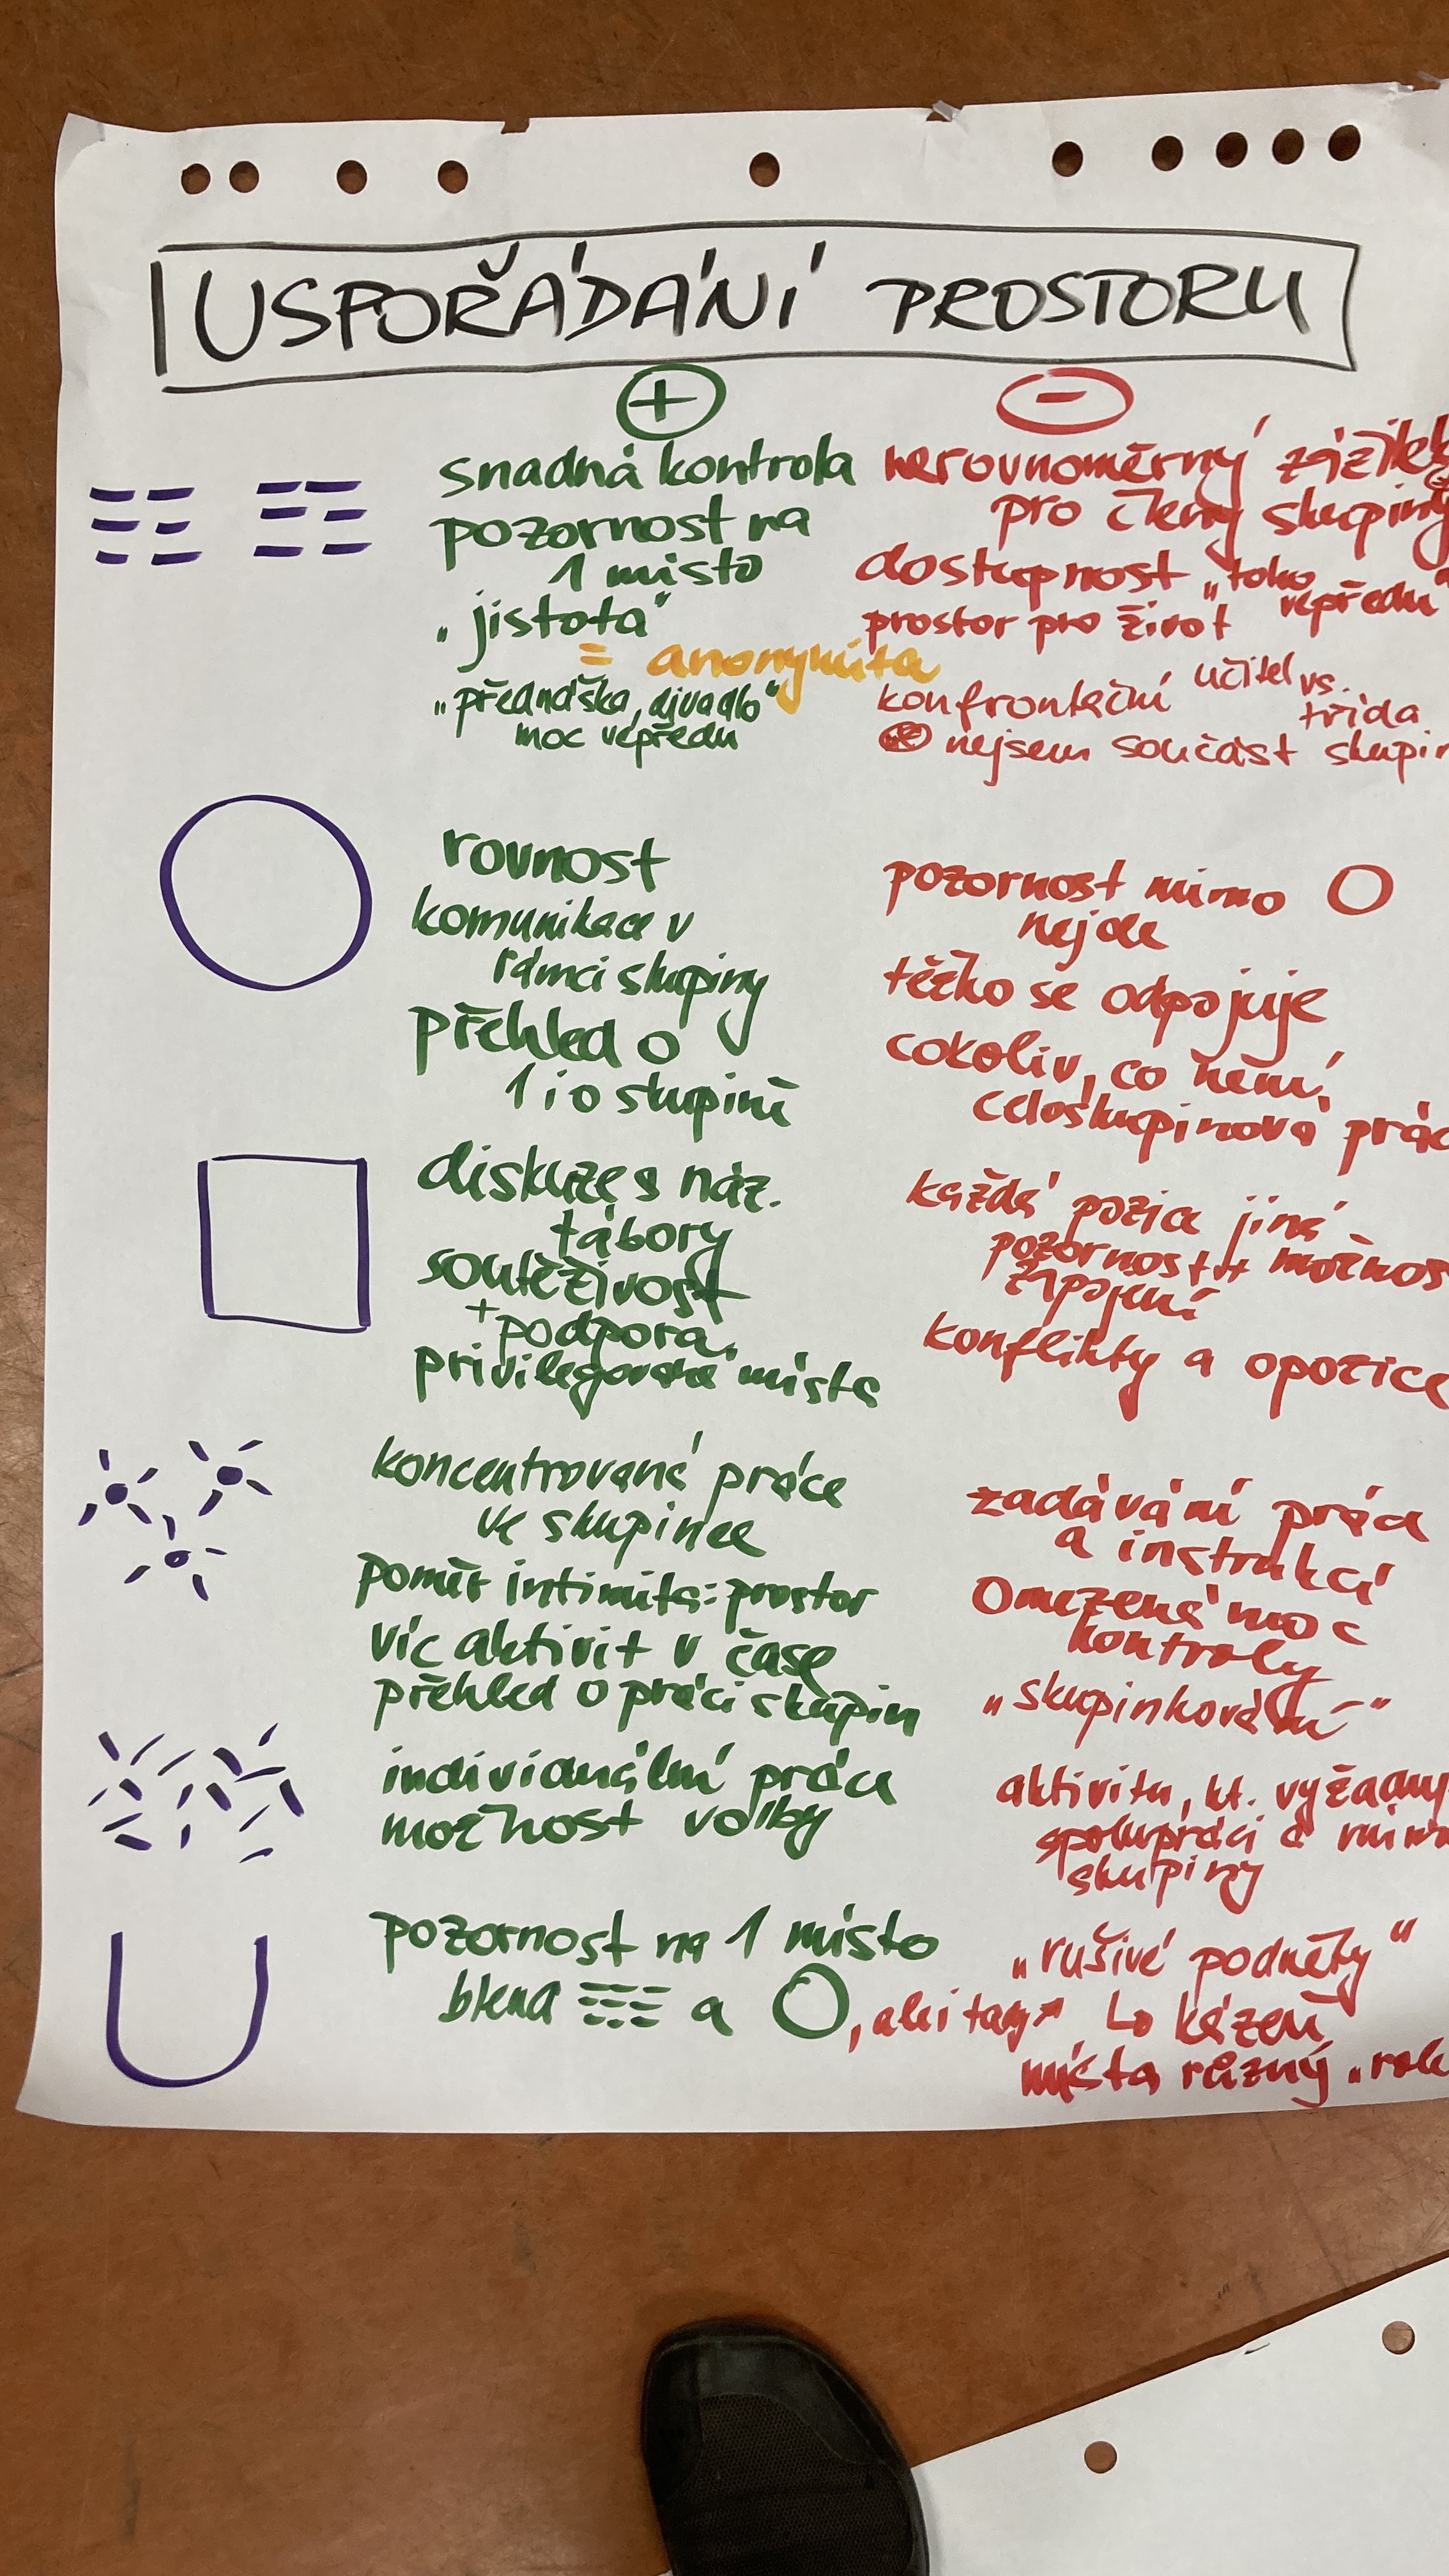 USPOŘÁDÁNÍ PROSTORU
+
-
snadná kontrola
pozornost na
1 místo
„jistota"
= anonymita
„přednáška, divadlo"
moc vepředu
nerovnoměrný zážitek
pro členy skupiny
dostupnost „toho
vepředu"
prostor pro život
konfrontační učitel vs.
třída
nejsem součást
rovnost
komunikace v
rámci skupiny
přehled o
1 i o skupině
pozornost mimo O
nejde
těžko se odpojuje
cokoliv, co není
celoskupinová
diskuze s náz.
tábory
soutěživost
+ podpora
privilegovaná místa
každá pozice jiná
pozornost +
zapojení
konflikty a opozice
koncentrovaná práce
ve skupince
poměr intimita:prostor
víc aktivit v čase
přehled o práci skupin
zadávání
a instrukcí
omezená moc
kontroly
„skupinkování"
individuální práce
možnost volby
aktivita, kt.
spolupráci a
skupiny
pozornost na 1 místo
blend a O, ale i tady
„rušivé podněty"
kázeň
místa různý